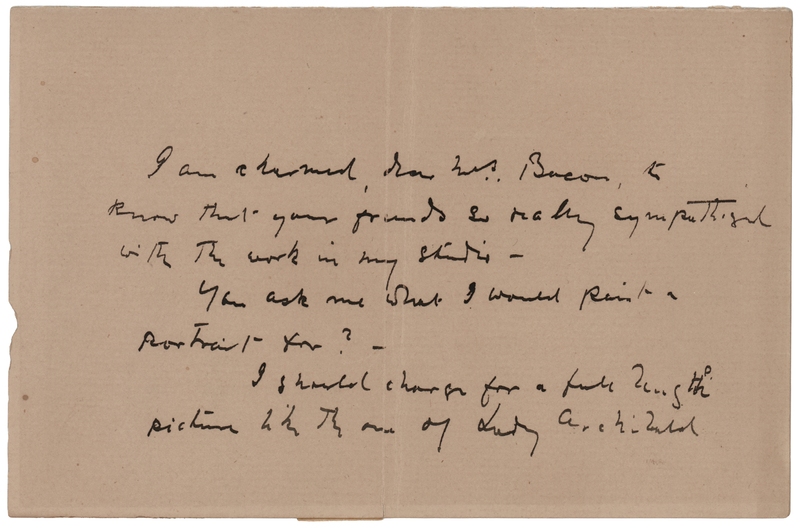 I am charmed, dear Mrs. Bacon, to
know that your friends so really sympathized
with the work in my studio —
You ask me what I would paint a
portrait for? —
I should charge for a full length
picture like the one of Lady Archibald